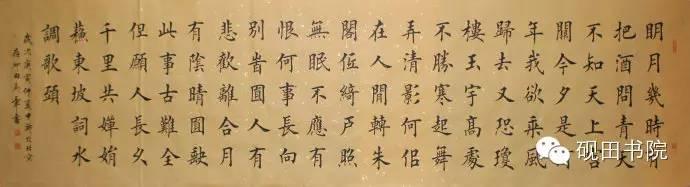 明月幾時有
把酒問青天
不知天上宮
闕今夕是何
年我欲乘風
歸去又恐瓊
樓玉宇高處
不勝寒起舞
弄清影何佀
在人間轉朱
閣低綺戶照
無眠不應有
恨何事長向
別旹圓人有
悲歡離合月
有陰晴圓缺
此事古難全
但願人長久
千里共嬋娟
蘇東坡詞水
調歌頭
歲次庚寅仲夏中
書
砚田书院